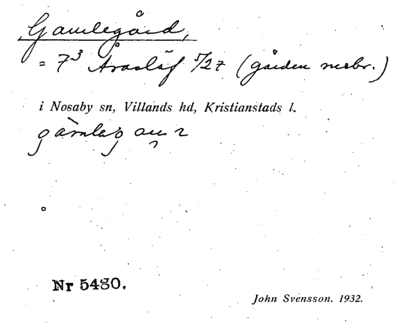 Gamlegård,
= 7³ Åraslöf 5/27 (gården nerbr.)
i Nosaby sn, Villands hd, Kristianstads l.
Nr 5480.
John Svensson. 1932.